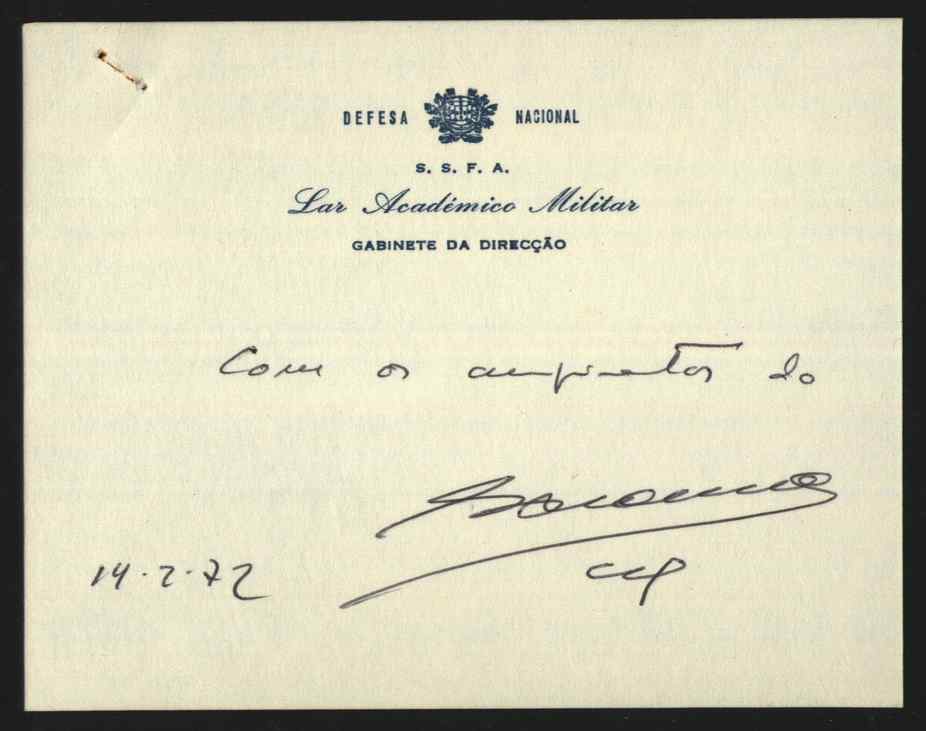 DEFESA NACIONAL
S. S. F. A.
Lar Académico Militar
GABINETE DA DIRECÇÃO
Com os cumprimentos do
14-2-72